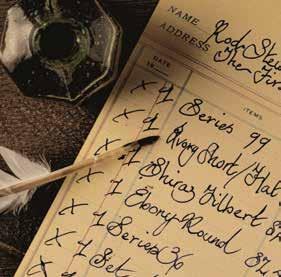 NAME Rod Stew
ADDRESS The Fir
DATE ITEMS
19
x 1 Series 99
x 1 Ivory Short/Flat
x 1 Shiraz Filbert 87
x 1 Ebony Round 87.
x 1 Series 36
x 1 Set